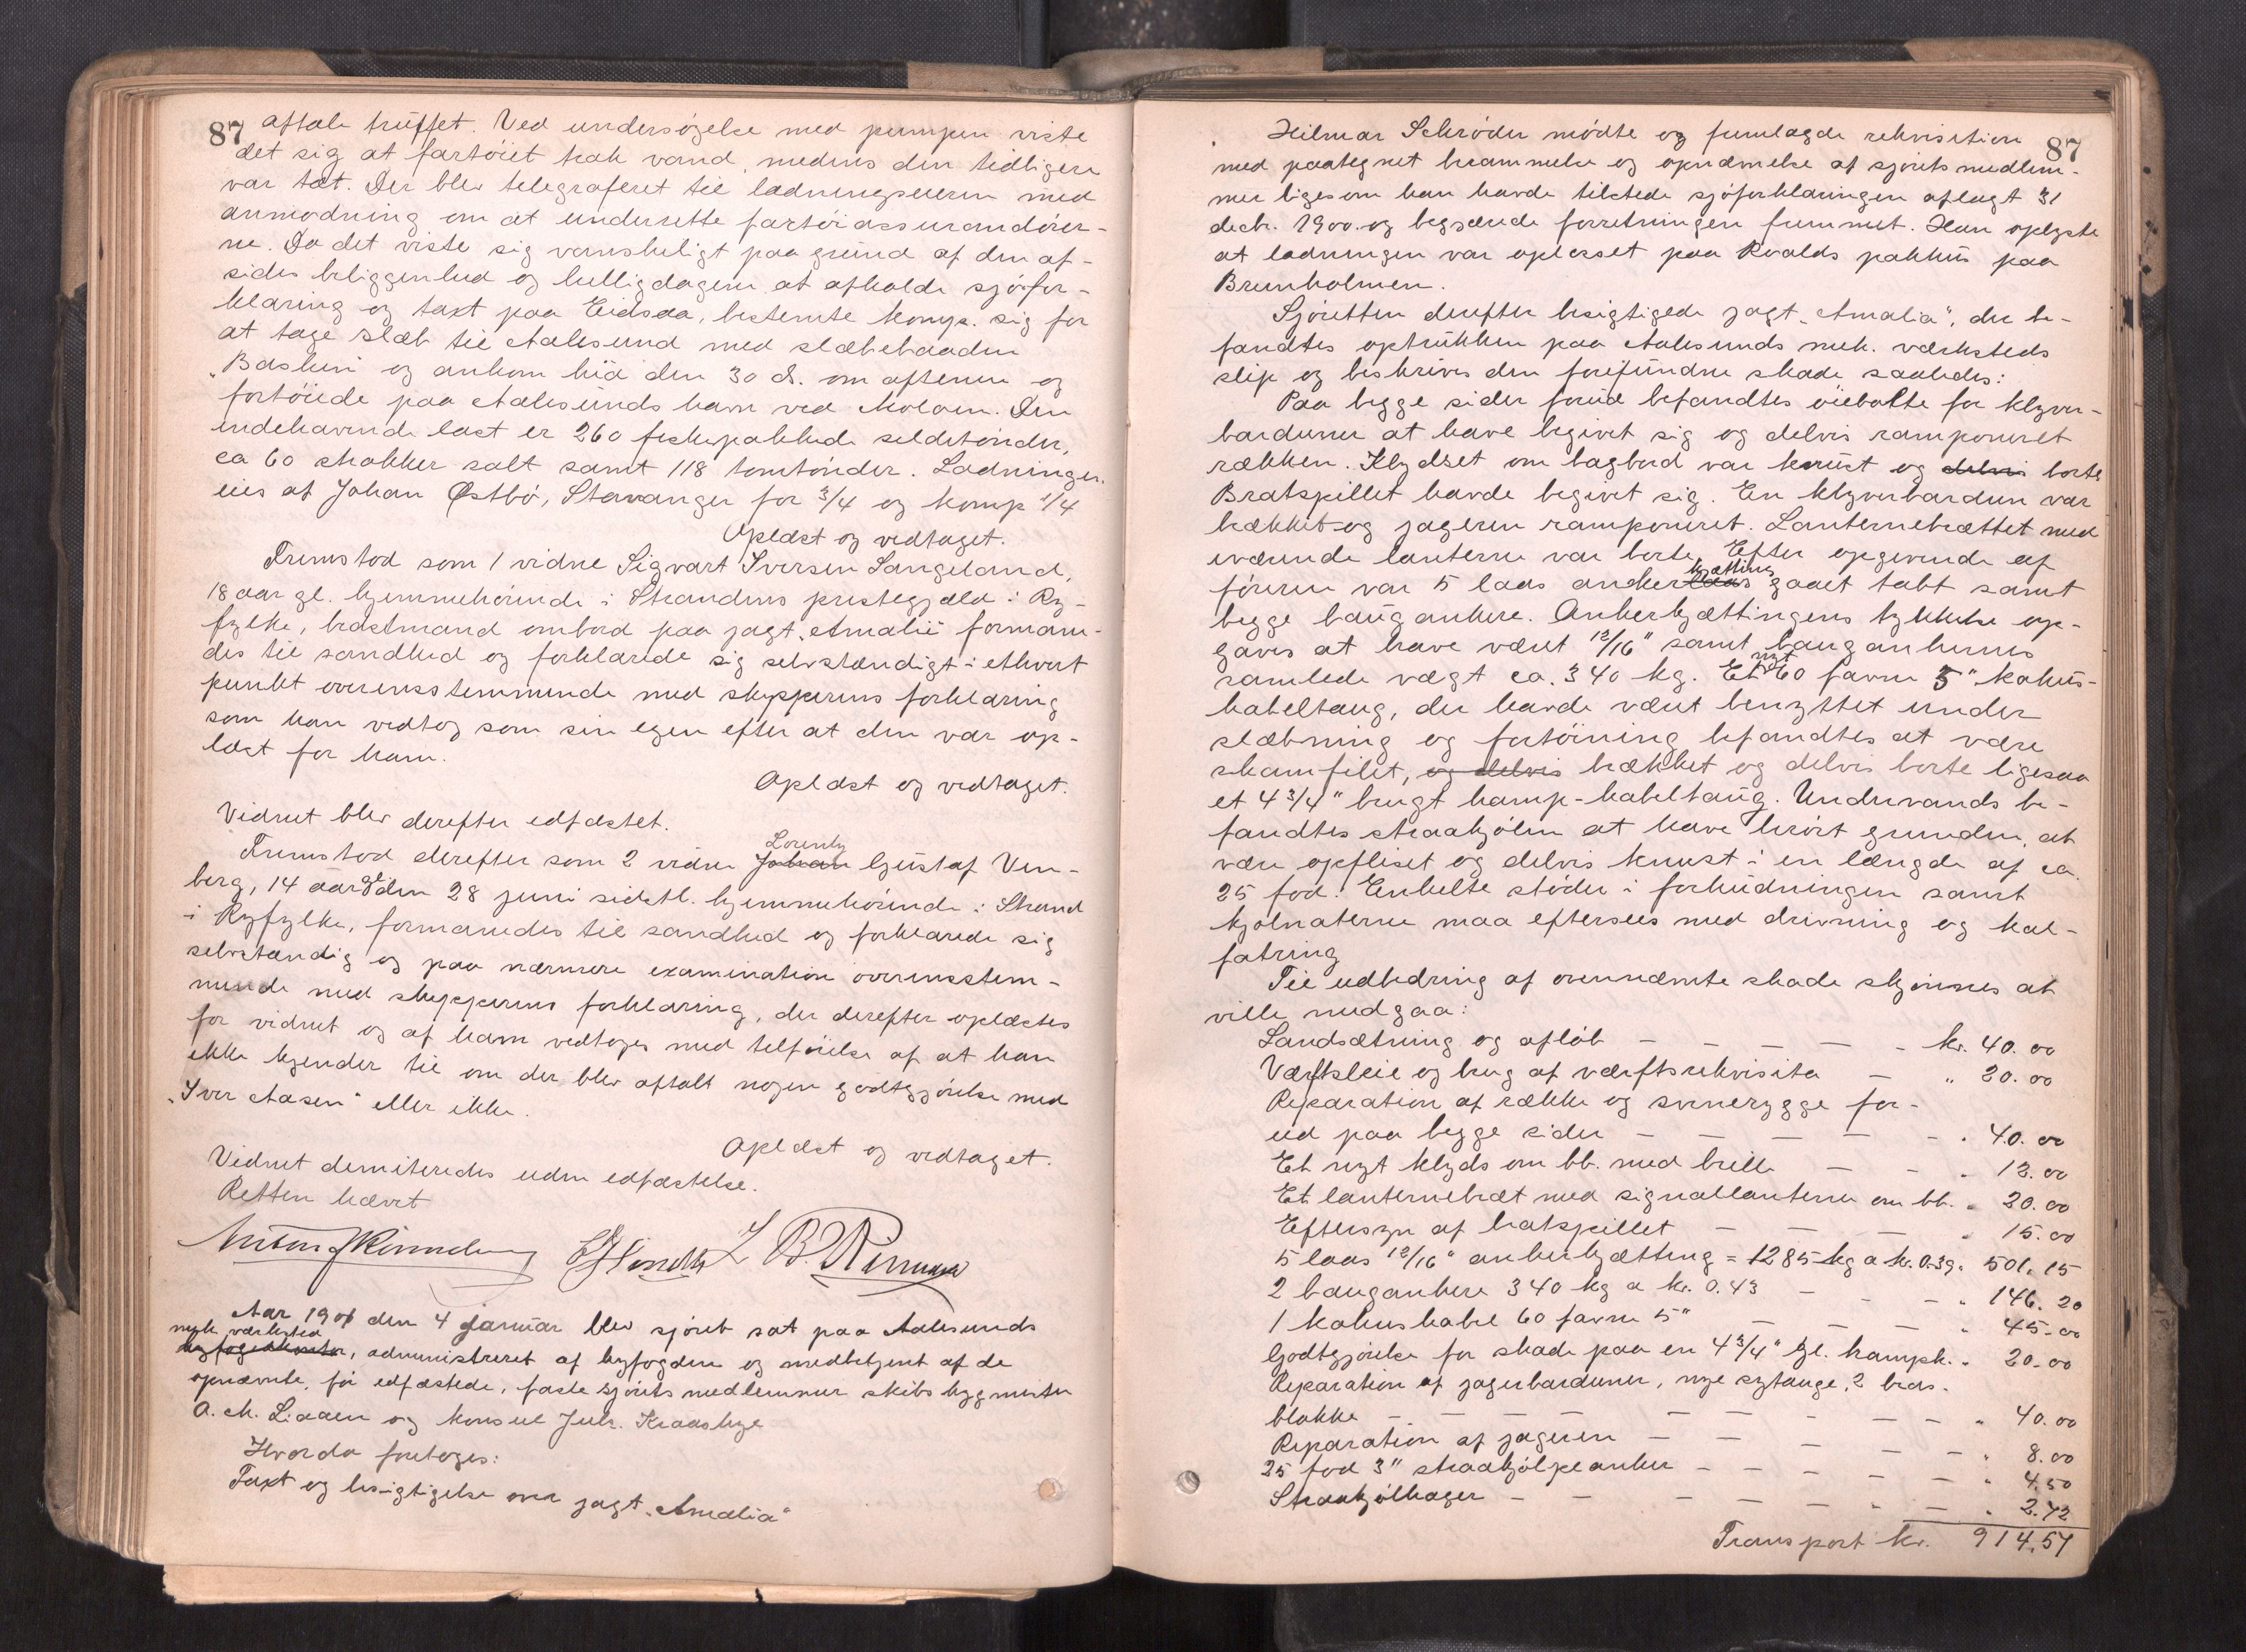 87
aftale truffet. Ved undersøgelse med pumpen viste
det sig at fartöiet trak vand, medens den tidligere
var tæt. Der blev telegraferet til ladningseieren med
anmodning om at underrette fartöiassurandörer-
ne. Da det viste sig vanskeligt paa grund af den af-
sides beliggenhed og helligdagene at afholde sjöfor-
klaring og taxt paa Eidsaa, bestemte komp. sig for
at tage slæb til Aalesund med slæbebaaden
"Basken" og ankom hid den 30 ds. om aftenen og
fortöiede paa Aalesunds havn ved Moloen. Den
indehavende last er 260 fiskepakkede sildetönder,
ca 60 strökker salt samt 118 tomtönder. Ladningen
eies af Johan Østbö, Stavanger for 3/4 og komp 1/4
Oplæst og vedtaget.
Fremstod som 1 vidne Sigvart Iversen Langeland,
18 aar gl. hjemmehörende i Strandens prestegjæld i Ry-
fylke, bedstmand ombord paa jagt "Amalie" formane-
des til sandhed og forklarede sig selvstændigt i ethvert
punkt overensstemmende med skipperens forklaring
som han vedtog som sin egen efter at den var op-
læst for ham.
Oplæst og vedtaget.
Vidnet blev derefter edfæstet.
Lorentz
Fremstod derefter som 2 vidne Johan Gustaf Ven-
berg, 14 aar gl. den 28 juni sidstl. hjemmehörende i Strand
i Ryfylke, formanedes til sandhed og forklarede sig
selvstændig og paa nærmere examination overensstem-
mende med skipperens forklaring, der derefter oplæstes
for vidnet og af ham vedtoges med tilföielse af at han
ikke kjender til om der blev aftalt nogen godtgjörelse med
"Iver Aasen" eller ikke.
Oplæst og vedtaget.
Vidnet demitteredes uden edfæstelse.
Retten hævet
Aar 1901 den 4 januar blev sjöret sat paa Aalesunds
mek. værksted
byfogedkontor, administreret af byfogden og medbetjent af de
opnævnte, för edfæstede, faste sjöretsmedlemmer skibsbygmester
O. M. Liaaen og konsul Juls. Kraasbye
Hvorda foretoges:
Taxt og besigtigelse over jagt "Amalia"
87
Hilmar Schröder mödte og fremlagde rekvisition
med paategnet berammelse og opnævnelse af sjöretsmedlem-
mer ligesom han havde tilstede sjöforklaringen aflagt 31
decbr. 1900 og begjærede forretningen fremmet. Han oplyste
at ladningen var oplosset paa Rvalds pakhus paa
Brunholmen.
Sjöretten derefter besigtigede jagt "Amalia", der be-
fandtes optrukken paa Aalesunds mek. værksteds
slip og beskrives den forefundne skade saaledes:
Paa begge sider forud befandtes öiebolte for klyver-
barduner at have begivet sig og delvis ramponeret
rækken. Klydset om bagbord var knust og delvis borte
Bratspillet havde begivet sig. En klyverbardun var
brækket og jageren ramponeret. Lanternebrættet med
iværende lanterne var borte. Efter opgivende af
kjætting
föreren var 5 laas ankerlaas gaaet tabt samt
begge baugankere. Ankerkjættingens tykkelse op-
gaves at have været 12/16" samt baugankernes
nyt
samlede vægt ca. 340 kg. Et 60 favne 5" kokus-
kabeltaug, der havde været benyttet under
slæbning og fortöining befandtes at være
skamfilet, og delvis brækket og delvis borte ligesaa
et 4 3/4" brugt hamp-kabeltaug. Undervands be-
fandtes straakjölen at have berört grunden, at
være opfliset og delvis knust i en længde af ca.
25 fod. Enkelte stöder i forhudningen samt
kjölnaterne maa eftersees med drivning og kal-
fatring
Til udbedring af overnævnte skade skjönnes at
ville medgaa:
Landsætning og aflöb – – – – – kr. 40.00
Værftsleie og brug af værftsrekvisita – " 20.00
Reparation af række og svinerygge for-
ud paa begge sider – – – – – " 40.00
Et nyt klyds om bb. med brille – – " 12.00
Et lanternebræt med signallanterne om bb. " 20.00
Eftersyn af bratspillet – – – – " 15.00
5 laas 12/16" ankerkjætting = 1285 kg a kr. 0.39 " 501.15
2 baugankere 340 kg a kr. 0.43 – – – " 146.20
1 kokuskabel 60 favne 5" – – – " 45.00
Godtgjörelse for skade paa en 4 3/4" gl. hampk. " 20.00
Reparation af jagerbarduner, nye sytauge, 2 bras-
blokke – – – – – – – – " 40.00
Reparation af jageren – – – – – " 8.00
25 fod 3" straakjölplanker – – – – – " 4.50
Straakjölhager – – – – – – " 2.72
Transport kr. 914.57